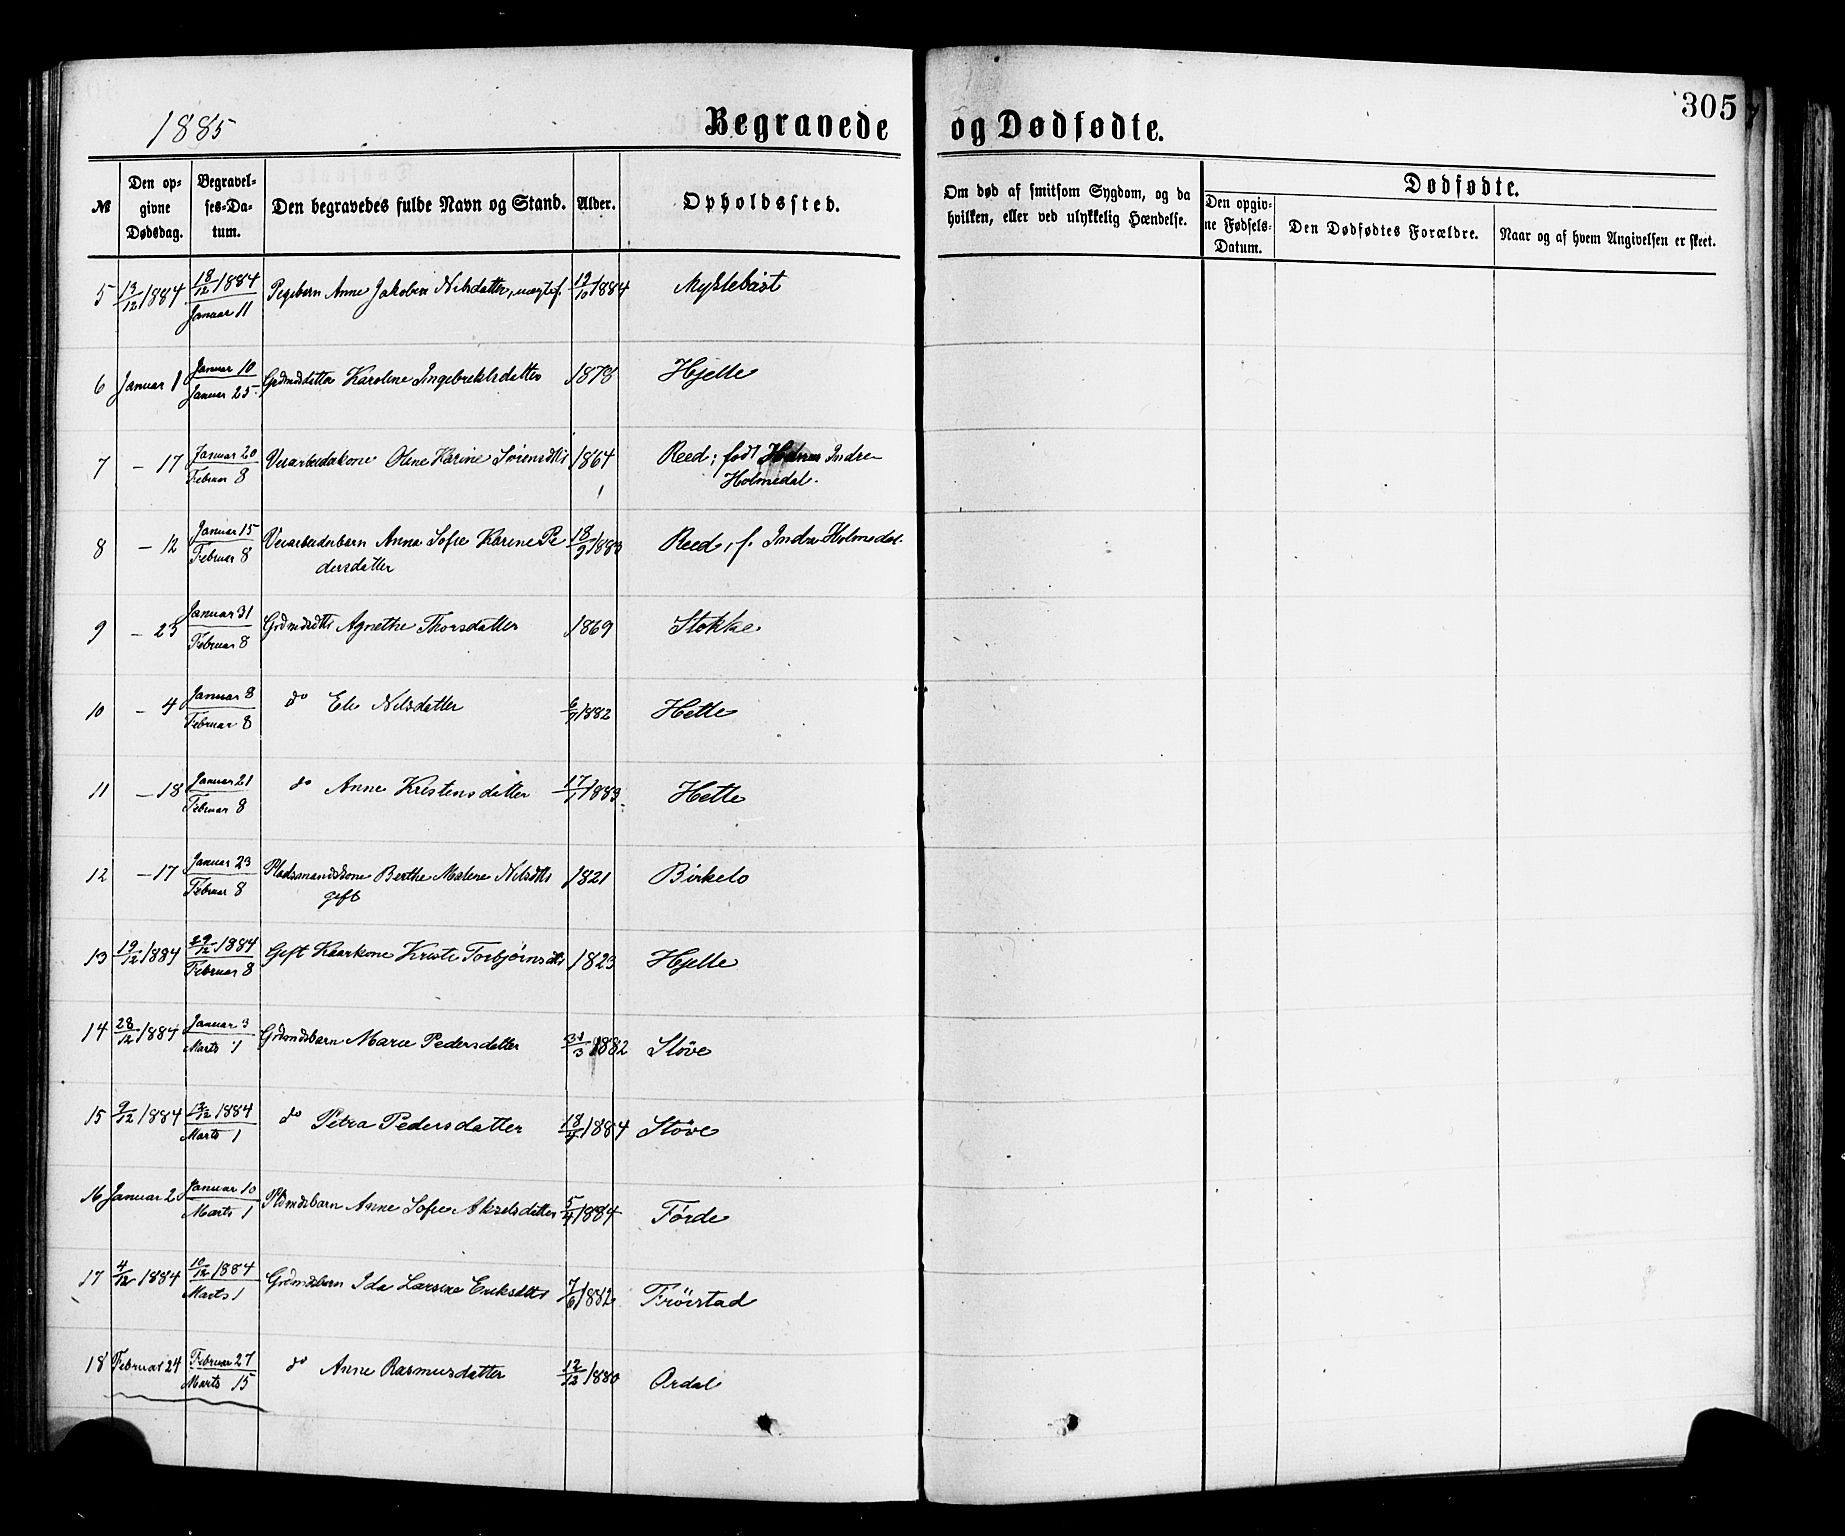 1885 Begravede og Dødfødte. 305
№ Den opgivne Dødsdag. Begravelses-Datum. Den begravedes fulde Navn og Stand. Alder. Opholdssted. Om død af smitsom Sygdom, og da hvilken, eller ved ulykkelig Hændelse. Dødfødte.
Den opgivne Fødsels-Datum. Den Dødfødtes Forældre. Naar og af hvem Angivelsen er skeet.
5 13/12 1884 18/12 1884 Januar 11 Pigebarn Anne Jakobin Nilsdatter, uægtef. 19/10 1884 Myklebust
6 Januar 1 Januar 10 Januar 25 Grdmdsdatter Karoline Ingebrektsdatter 1878 Hjelle
7 – 17 Januar 20 Februar 8 Olene Karine Sørensdttr 1864 Reed; født Indre
Holmedal.
8 – 12 Januar 15 Februar 8 Anna Sofie Karine Pe 18/9 1883 Reed, f. Indre Holmedal.
dersdatter
9 – 23 Januar 31 Februar 8 Grdmdsdttr Agnethe Thorsdatter 1869 Stokke
10 – 4 Januar 8 Februar 8 do Eli Nilsdatter 6/9 1882 Hette
11 – 18 Januar 21 Februar 8 do Anne Kristensdatter 17/7 1883. Hette
12 – 17 Januar 23 Februar 8 Pladsmandskone Berthe Malene Nilsdttr 1821 Birkelo
gift
13 19/12 1884 29/12 1884 Februar 8 Gift Kaarkone Kristi Torbjørnsdttr 1823 Hjelle
14 28/12 1884 Januar 3 Marts 1 Grdmdsbarn Marie Pedersdatter 31/3 1882 Støve
15 9/12 1884 13/12 1884 Marts 1 do Petra Pedersdatter 18/4 1884 Støve
16 Januar 2 Januar 10 Marts 1 Pldmdsbarn Anne Sofie Akselsdatter 5/4 1884 Førde
17 4/12 1884 10/12 1884 Marts 1 Grdmdsbarn Ida Larsine Eriksdttr 7/6 1882 Frøistad
18 Februar 24 Februar 27 Marts 15 do Anne Rasmusdatter 12/12 1880 Ordal